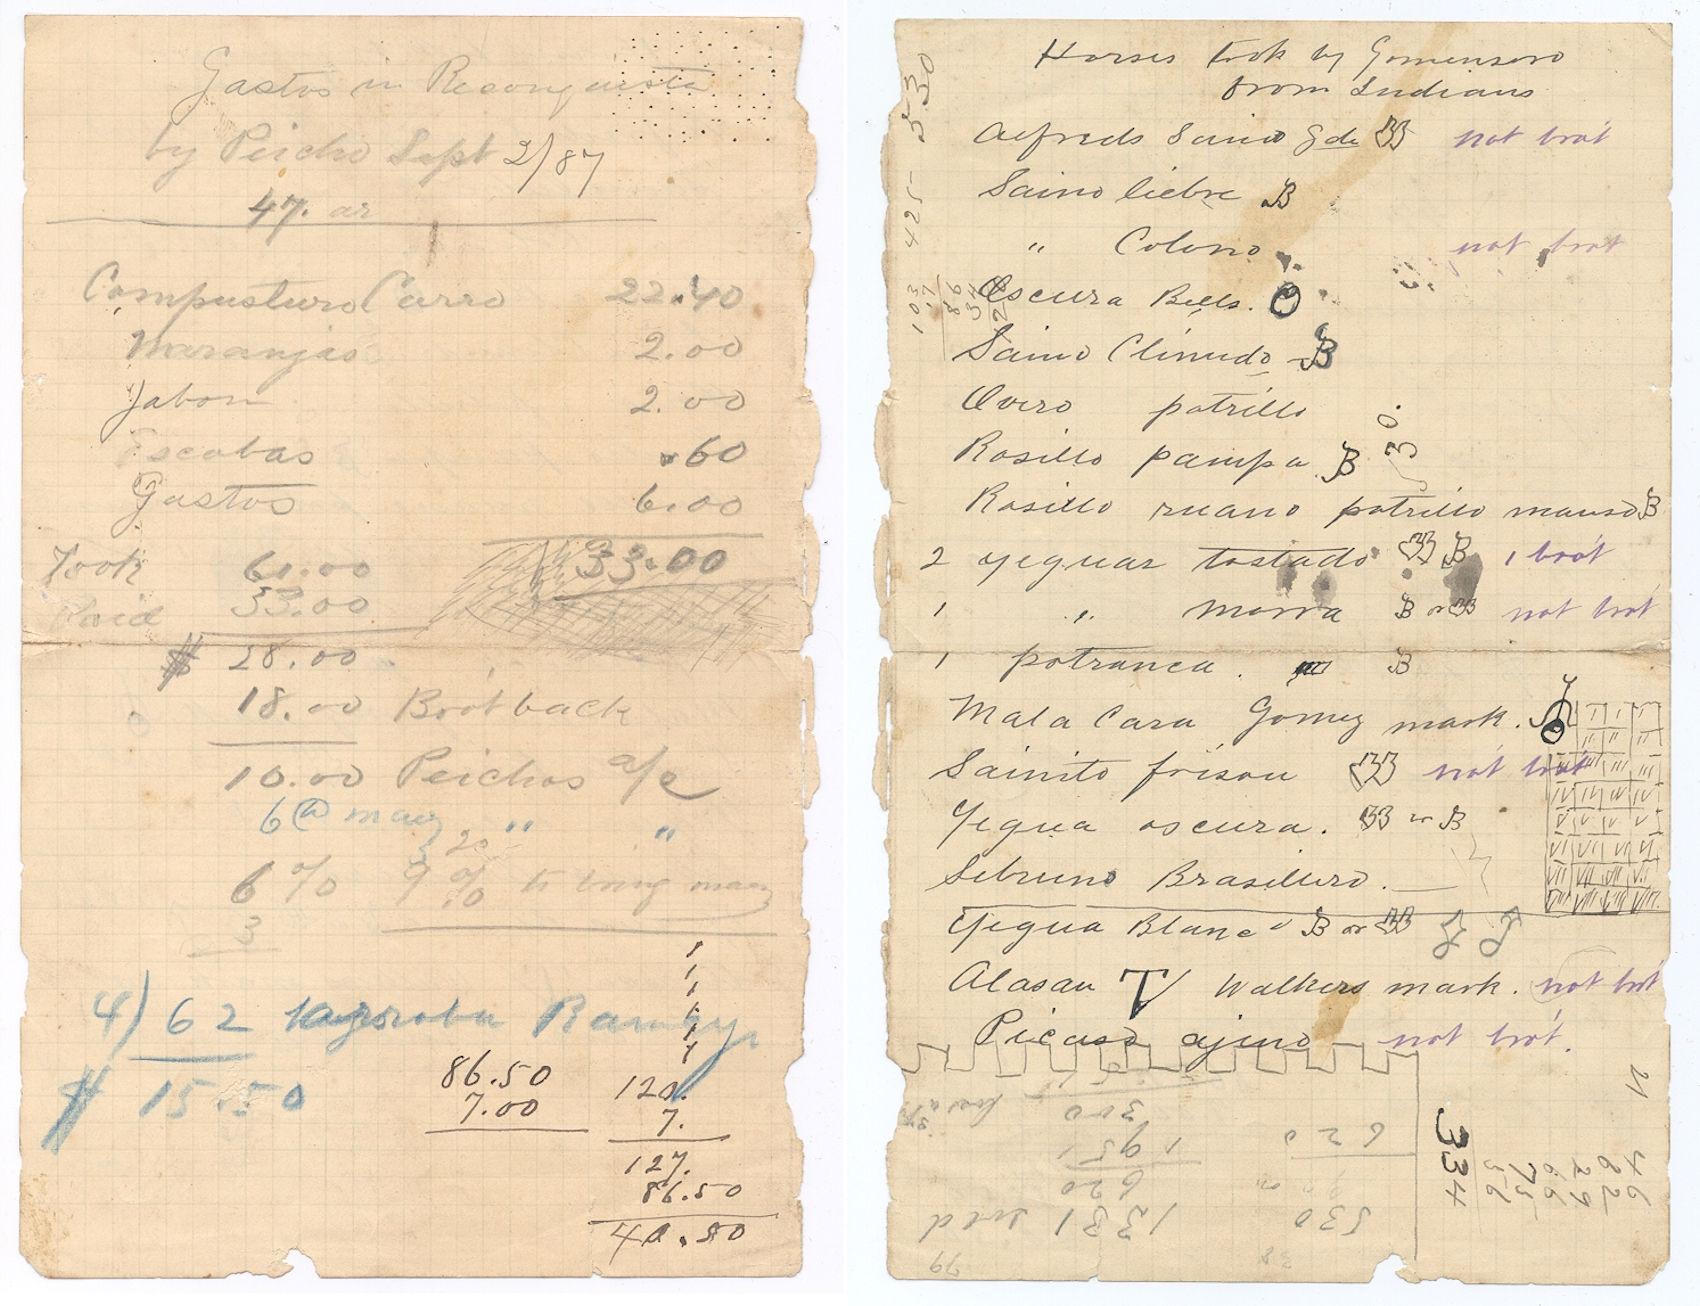 Gastos in Reconquista
by Peicho Sept 2/87
47. ar
Compusturo Carro 22.40
Naranjas 2.00
Jabon 2.00
Escobas .60
Gastos 6.00
33.00
Took 61.00
Paid 33.00
$ 28.00
18.00 Brót back
10.00 Peichos a/c
6 @ maiz
20 " "
6 % 9 % to bring maiz
3
4) 62 Ramby
$ 15.50
86.50
7.00
120.
7.
127.
86.50
40.50
Horses took by Gomensoro
from Indians
Alfreds Saino Gde BB not brót
Saino liebre B
" Colono not brot
Oscura Bells.
Saino Clinudo B
Overo potrillo
Rosillo pampa B
Rosillo ruano potrillo manso B
2 yeguas tostado BB B 1 brót
1 " morra B or BB not brot
1 potranca. B
Mala Cara Gomez mark.
Sainito frison BB not brót
Yegua oscura. BB or B
Sebruno Brasillero.
Yegua Blanca B or BB
Alasan T Walkers mark. not brót
Picaso ajeno not brót.
530
425
103
30
21
334
300
1951
620
1331 sold
620
530
79
38